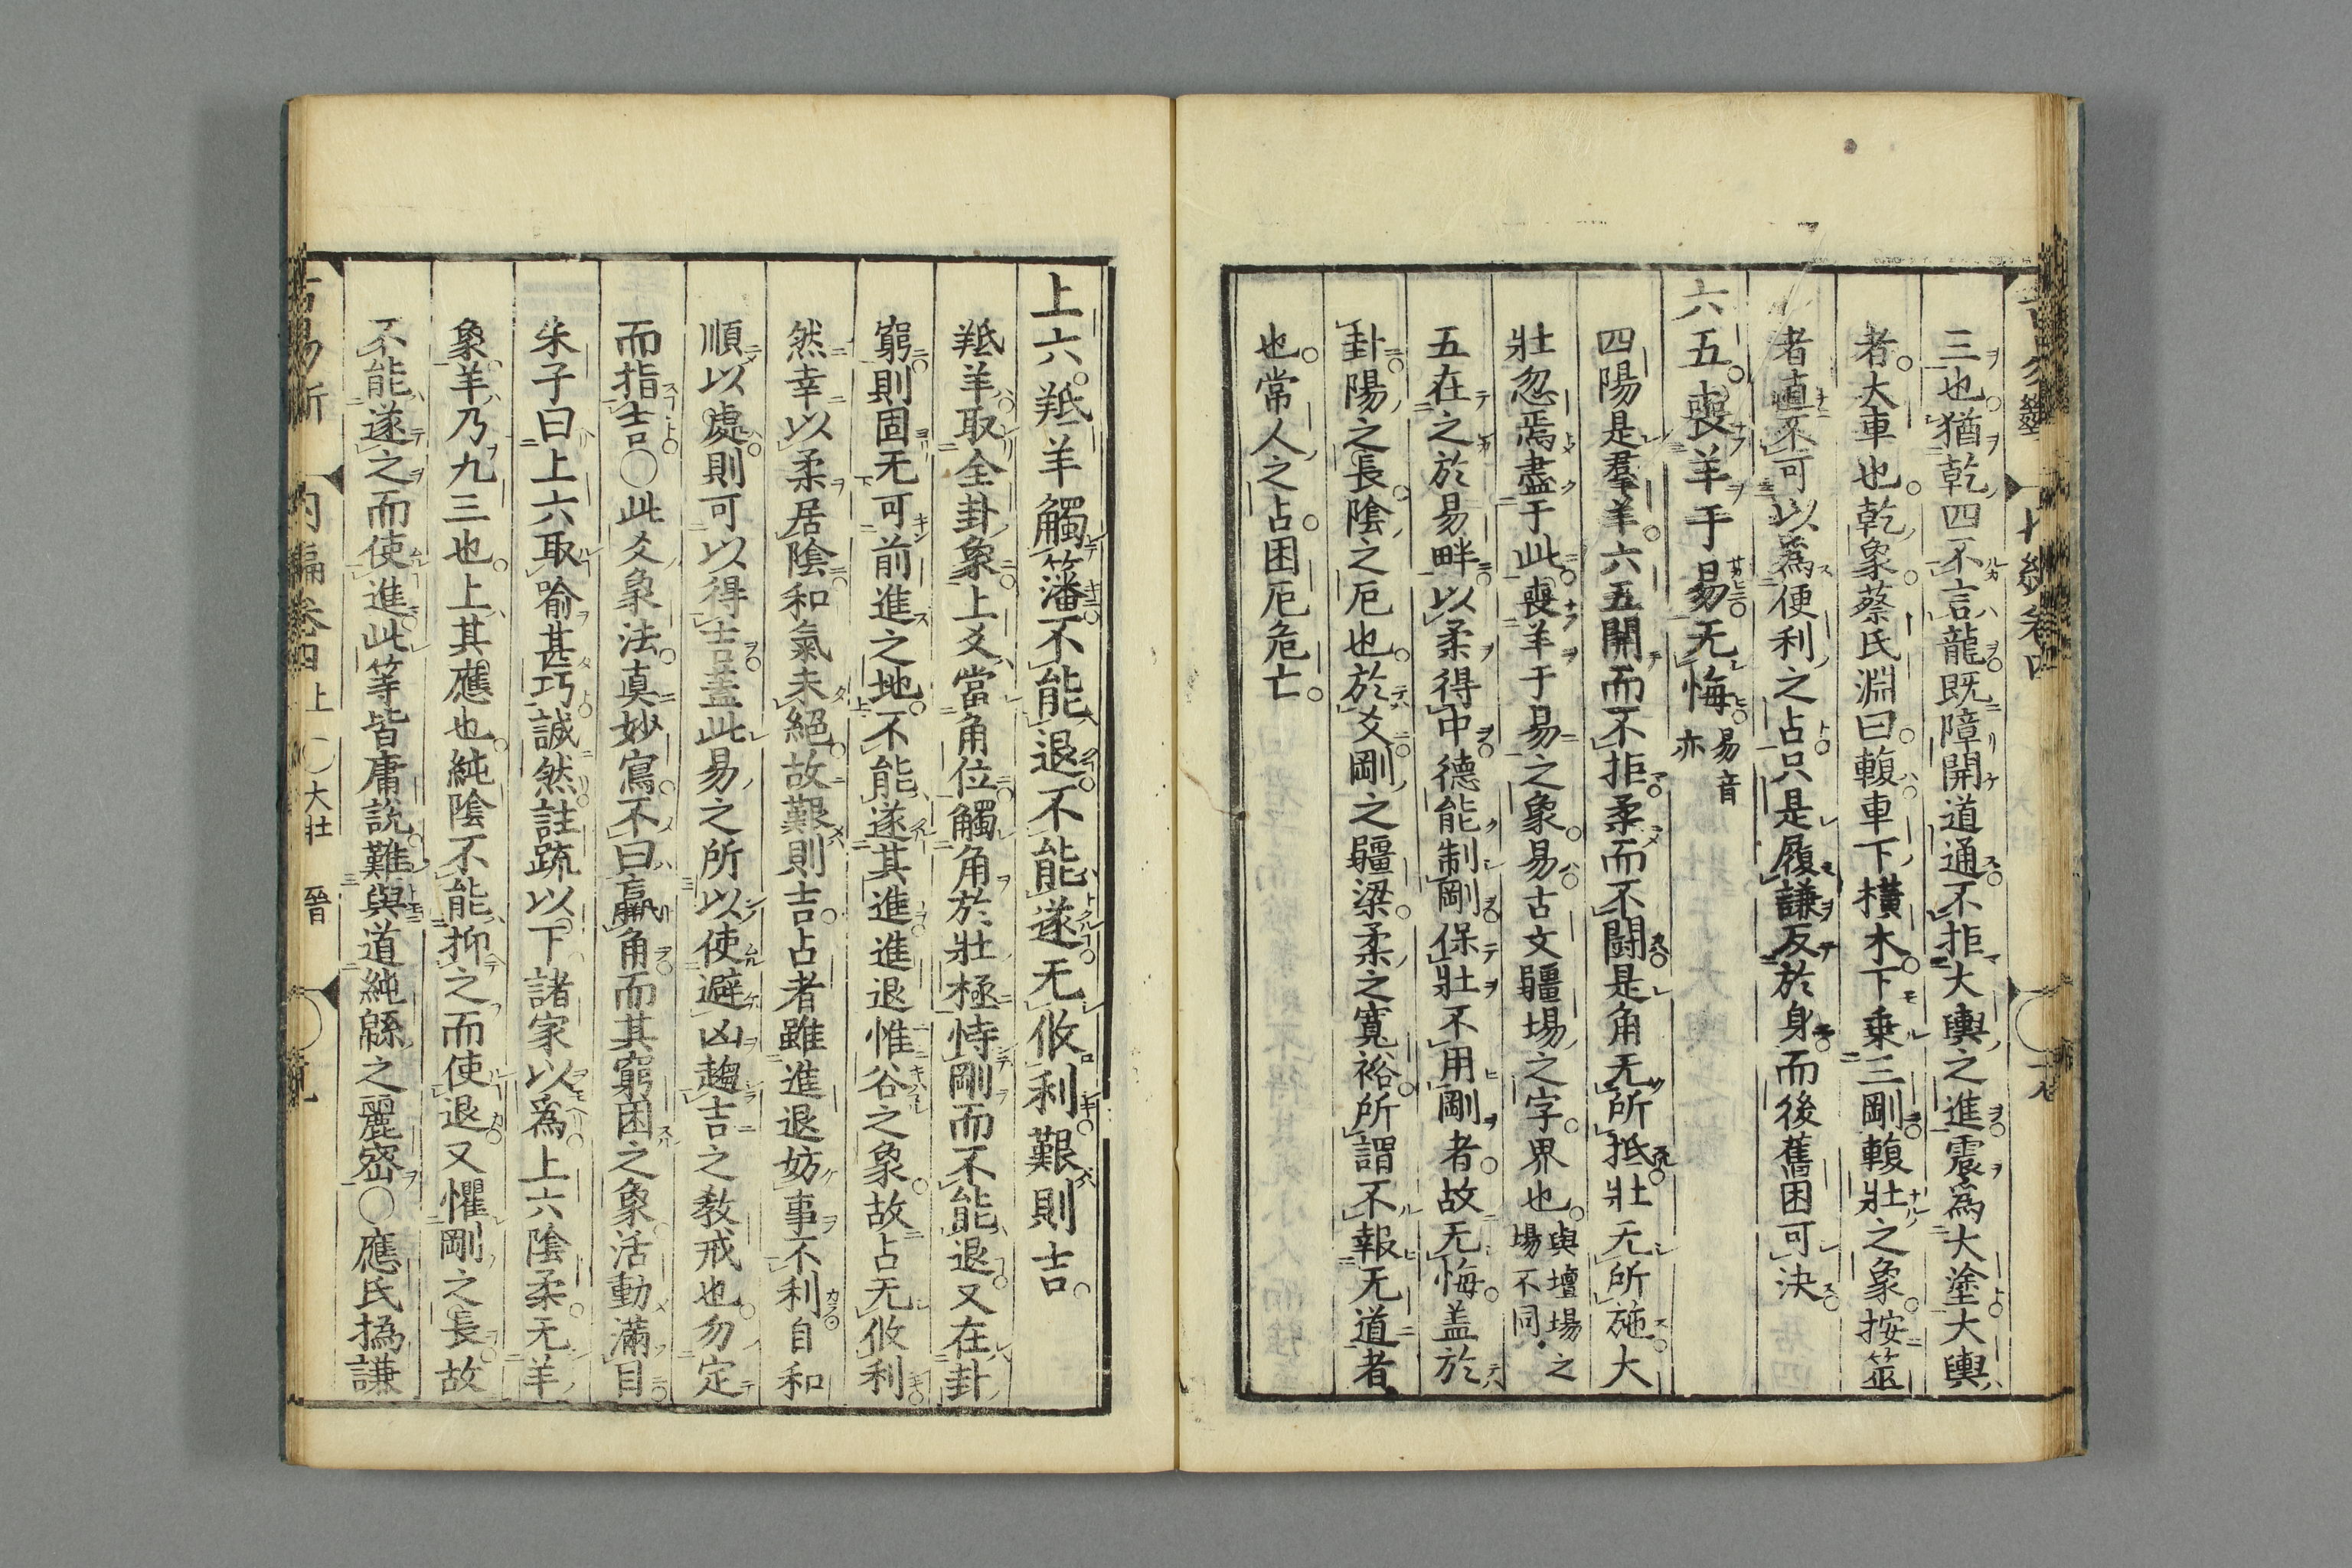 三也猶乾四不言龍既障開道通不拒大輿之進震爲大塗大輿
者大車也乾象蔡氏淵曰輹車下橫木下乗三剛輹壯之象按筮
者直不可以爲便利之占只是履謙反於身而後舊困可決
六五喪羊于易无悔易音亦
四陽是羣羊六五開而不拒柔而不鬪是角无所抵壯无所施大
壯忽焉盡于此喪羊于易之象易古文疆埸之字界也與壇場之場不同
五在之於易畔以柔得中德能制剛保壯不用剛者故无悔盖於
卦陽之長陰之厄也於爻剛之疆梁柔之寬裕所謂不報无道者
也常人之占困厄危亡
上六羝羊觸籓不能退不能遂无攸利艱則吉
羝羊取全卦象上爻當角位觸角於壯極恃剛而不能退又在卦
窮則固无可前進之地不能遂其進進退惟谷之象故占无攸利
然幸以柔居陰和氣未絕故艱則吉占者雖進退妨事不利自和
順以處則可以得吉蓋此易之所以使避凶趨吉之教戒也勿定
而指吉○此爻象法真妙寫不曰羸角而其窮困之象活動滿目
朱子曰上六取喻甚巧誠然註疏以下諸家以爲上六陰柔无羊
象羊乃九三也上其應也純陰不能抑之而使退又懼剛之長故
不能遂之而使進此等皆庸說難與道純緜之麗密○應氏撝謙
古易斷 內編卷四上 ○大壯 晉